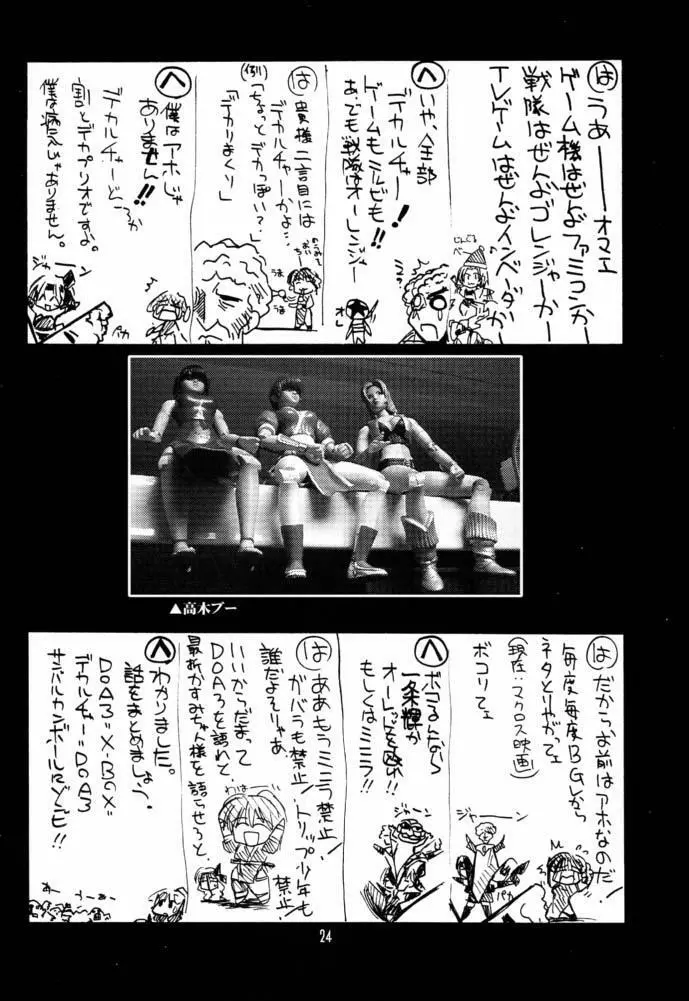 は
うあーーオマエ
ゲーム機はぜんぶファミコンかー
戦隊はぜんぶゴレンジャーかー
テレゲームはぜんぶインベーダーかー
へ
いや、全部
デカルチャー!
ゲームもミルピも!!
あ、でも戦隊はオーレンジャー
オレ
は
貴様二言目には
デカルチャーかよ…
(例)
「ちょっとデカっぽい?」
「デカりまくり」
へ
僕はアホじゃ
ありません!!
デカルチャーどころか
割とデカプリオですよ。
僕は病人じゃありません。
ジャーン
パカ
▲高木ブー
は
だからお前はアホなのだ!
毎度毎度BGVから
ネタとりやがってェ
(現在:マクロス映画)
ボコリてェ
ジャーン
パカ
へ
ボコるんなら
一条輝が
オーレッドを殴れ!!
もしくはミニラ!!
ジャーン
は
ああもうミニラ禁止!
ガバラも禁止!トリップ少年も禁止!
誰だよそりゃあ
いいからだまって
DOA3を語れて
最新かすみちゃん様を語らせろと
わは
へ
わかりました。
話をまとめましょう。
DOA3=X-BOX=
デカルチャー=DOA3
サンバルカンボールRゾビ!!
24